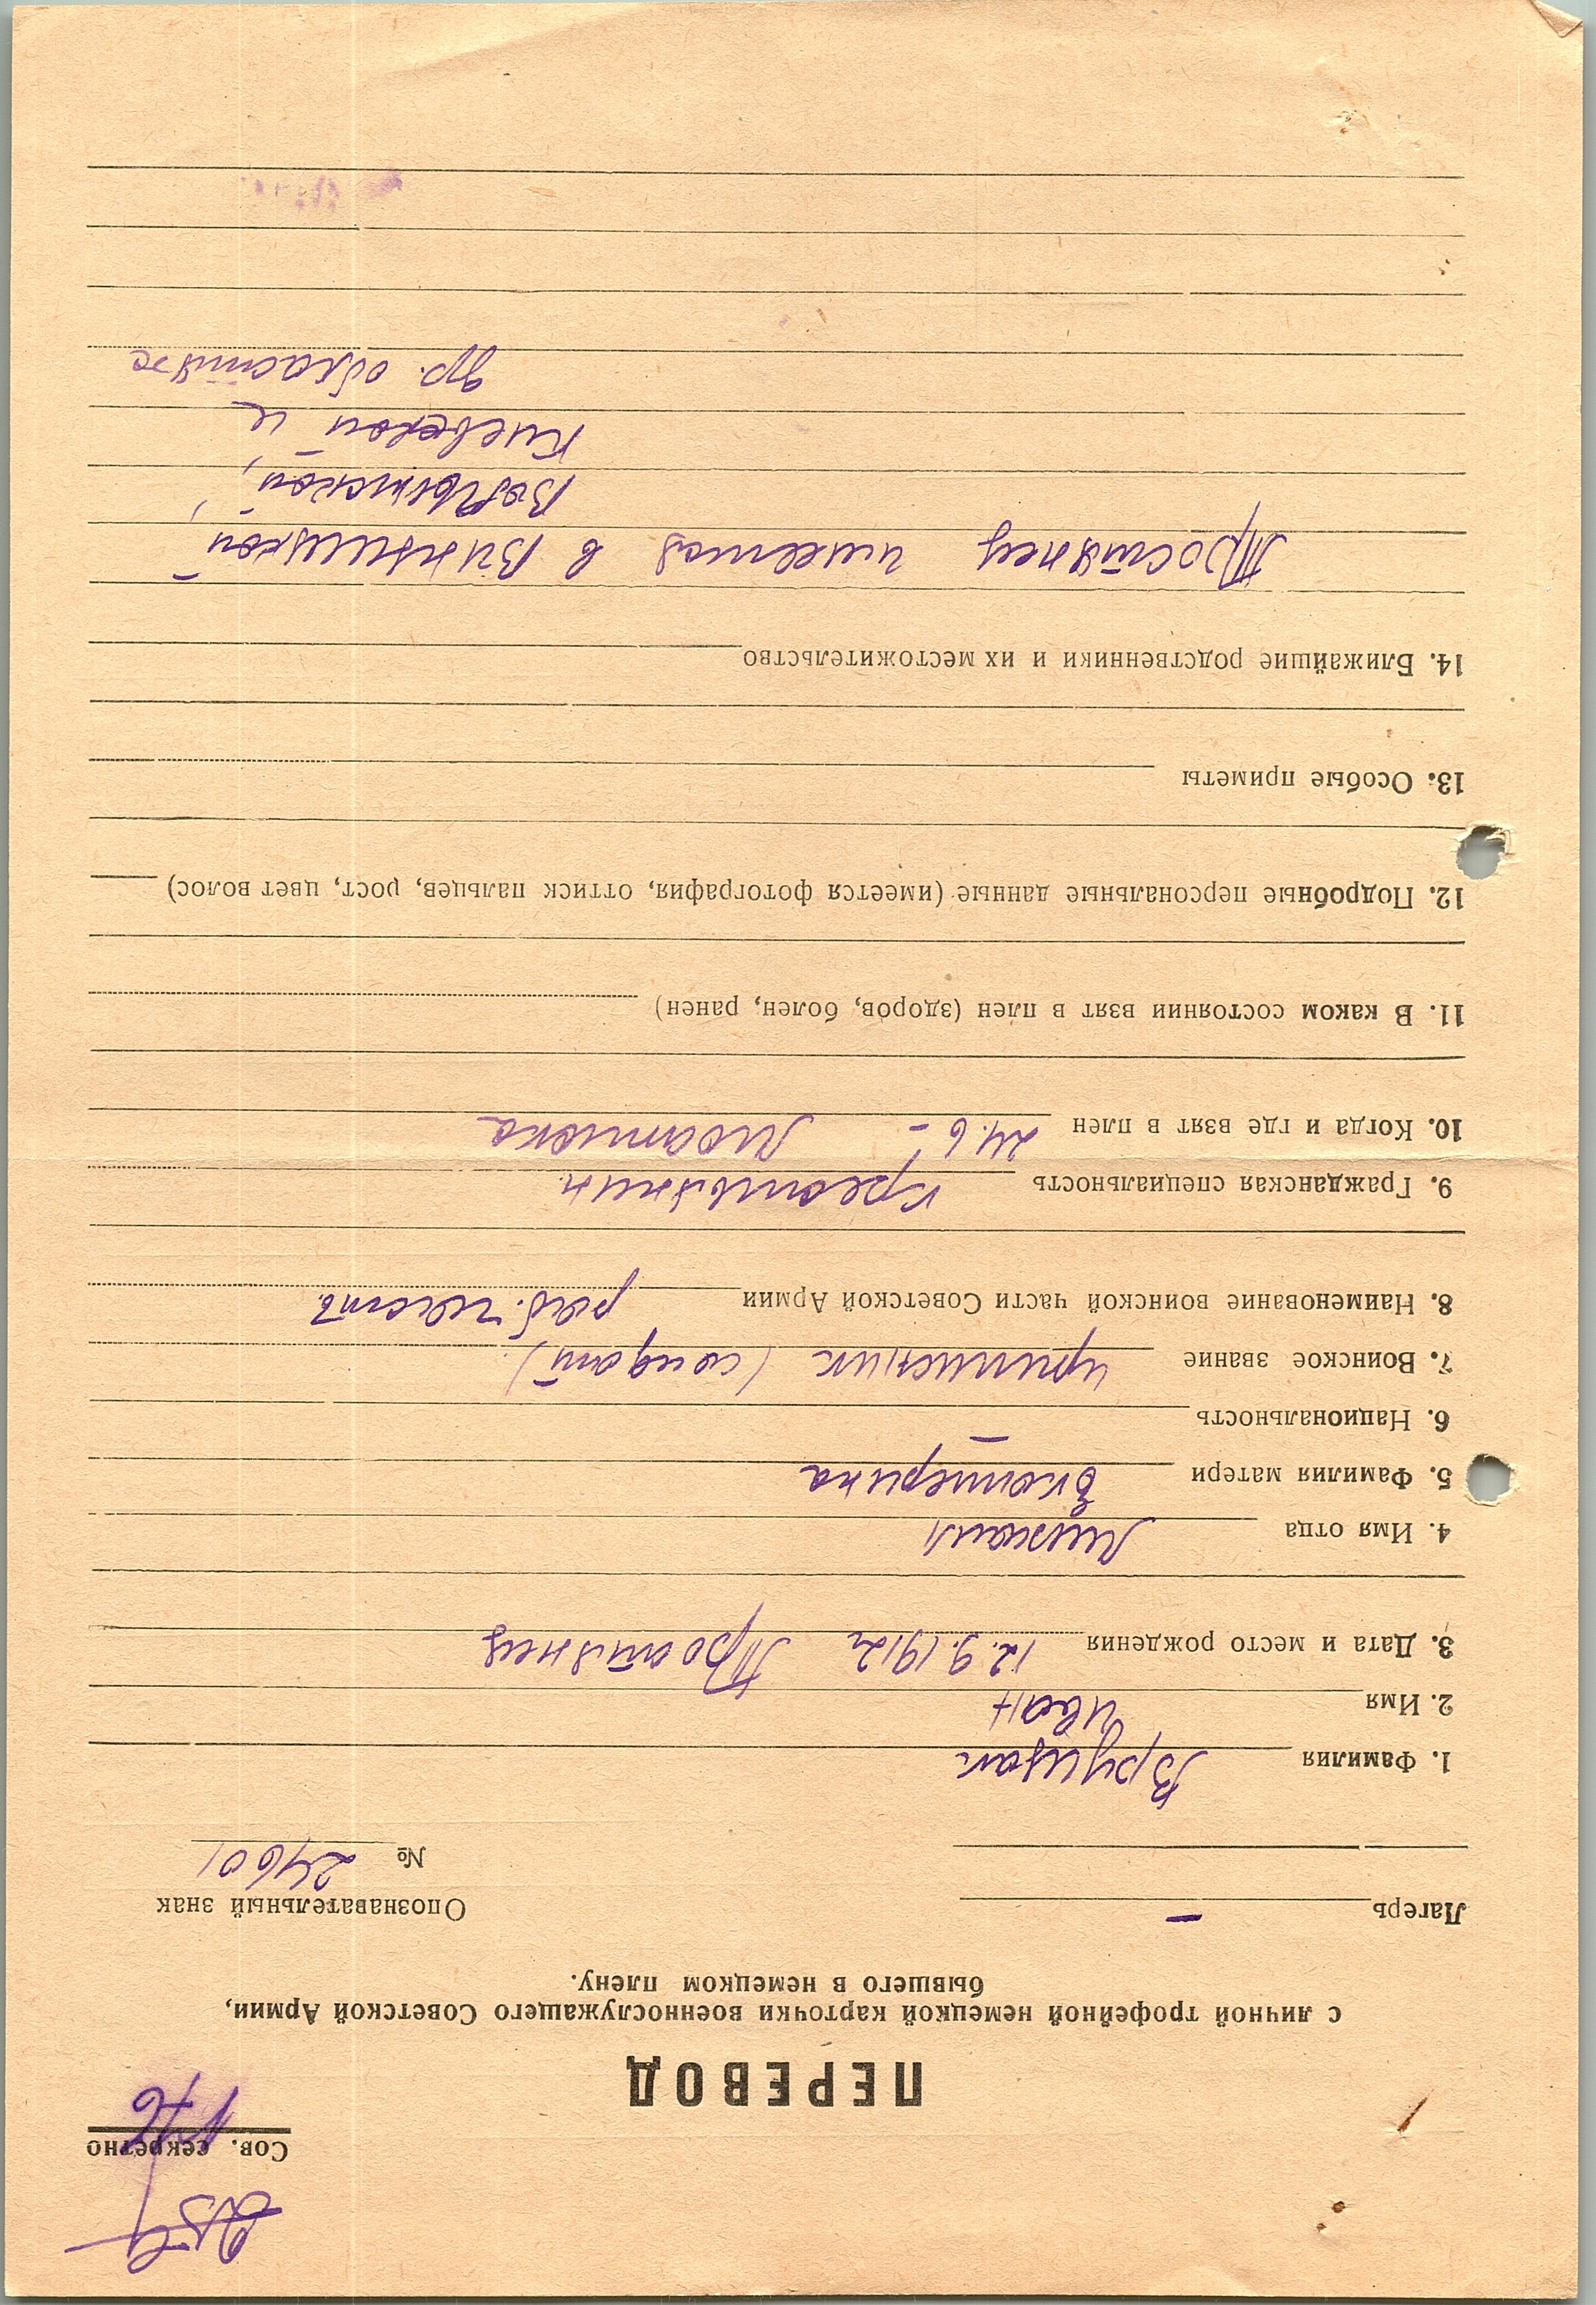 Сов. секретно
ПЕРЕВОД
с личной трофейной немецкой карточки военнослужащего Советской Армии,
бывшего в немецком плену.
Лагерь — Опознавательный знак
№ 24601
1. Фамилия Вруцак
2. Имя Иван
3. Дата и место рождения 12.9.1912 Тростянец
4. Имя отца Михаил
5. Фамилия матери Екатерина
6. Национальность —
7. Воинское звание (солдат)
8. Наименование воинской части Советской Армии раб. часть
9. Гражданская специальность крестьянин
10. Когда и где взят в плен 24.6 –
11. В каком состоянии взят в плен (здоров, болен, ранен)
12. Подробные персональные данные (имеется фотография, оттиск пальцев, рост, цвет волос)
13. Особые приметы
14. Ближайшие родственники и их местожительство
Тростянец имеется в Винницкой
Волынской,
Киевской и
др. областях